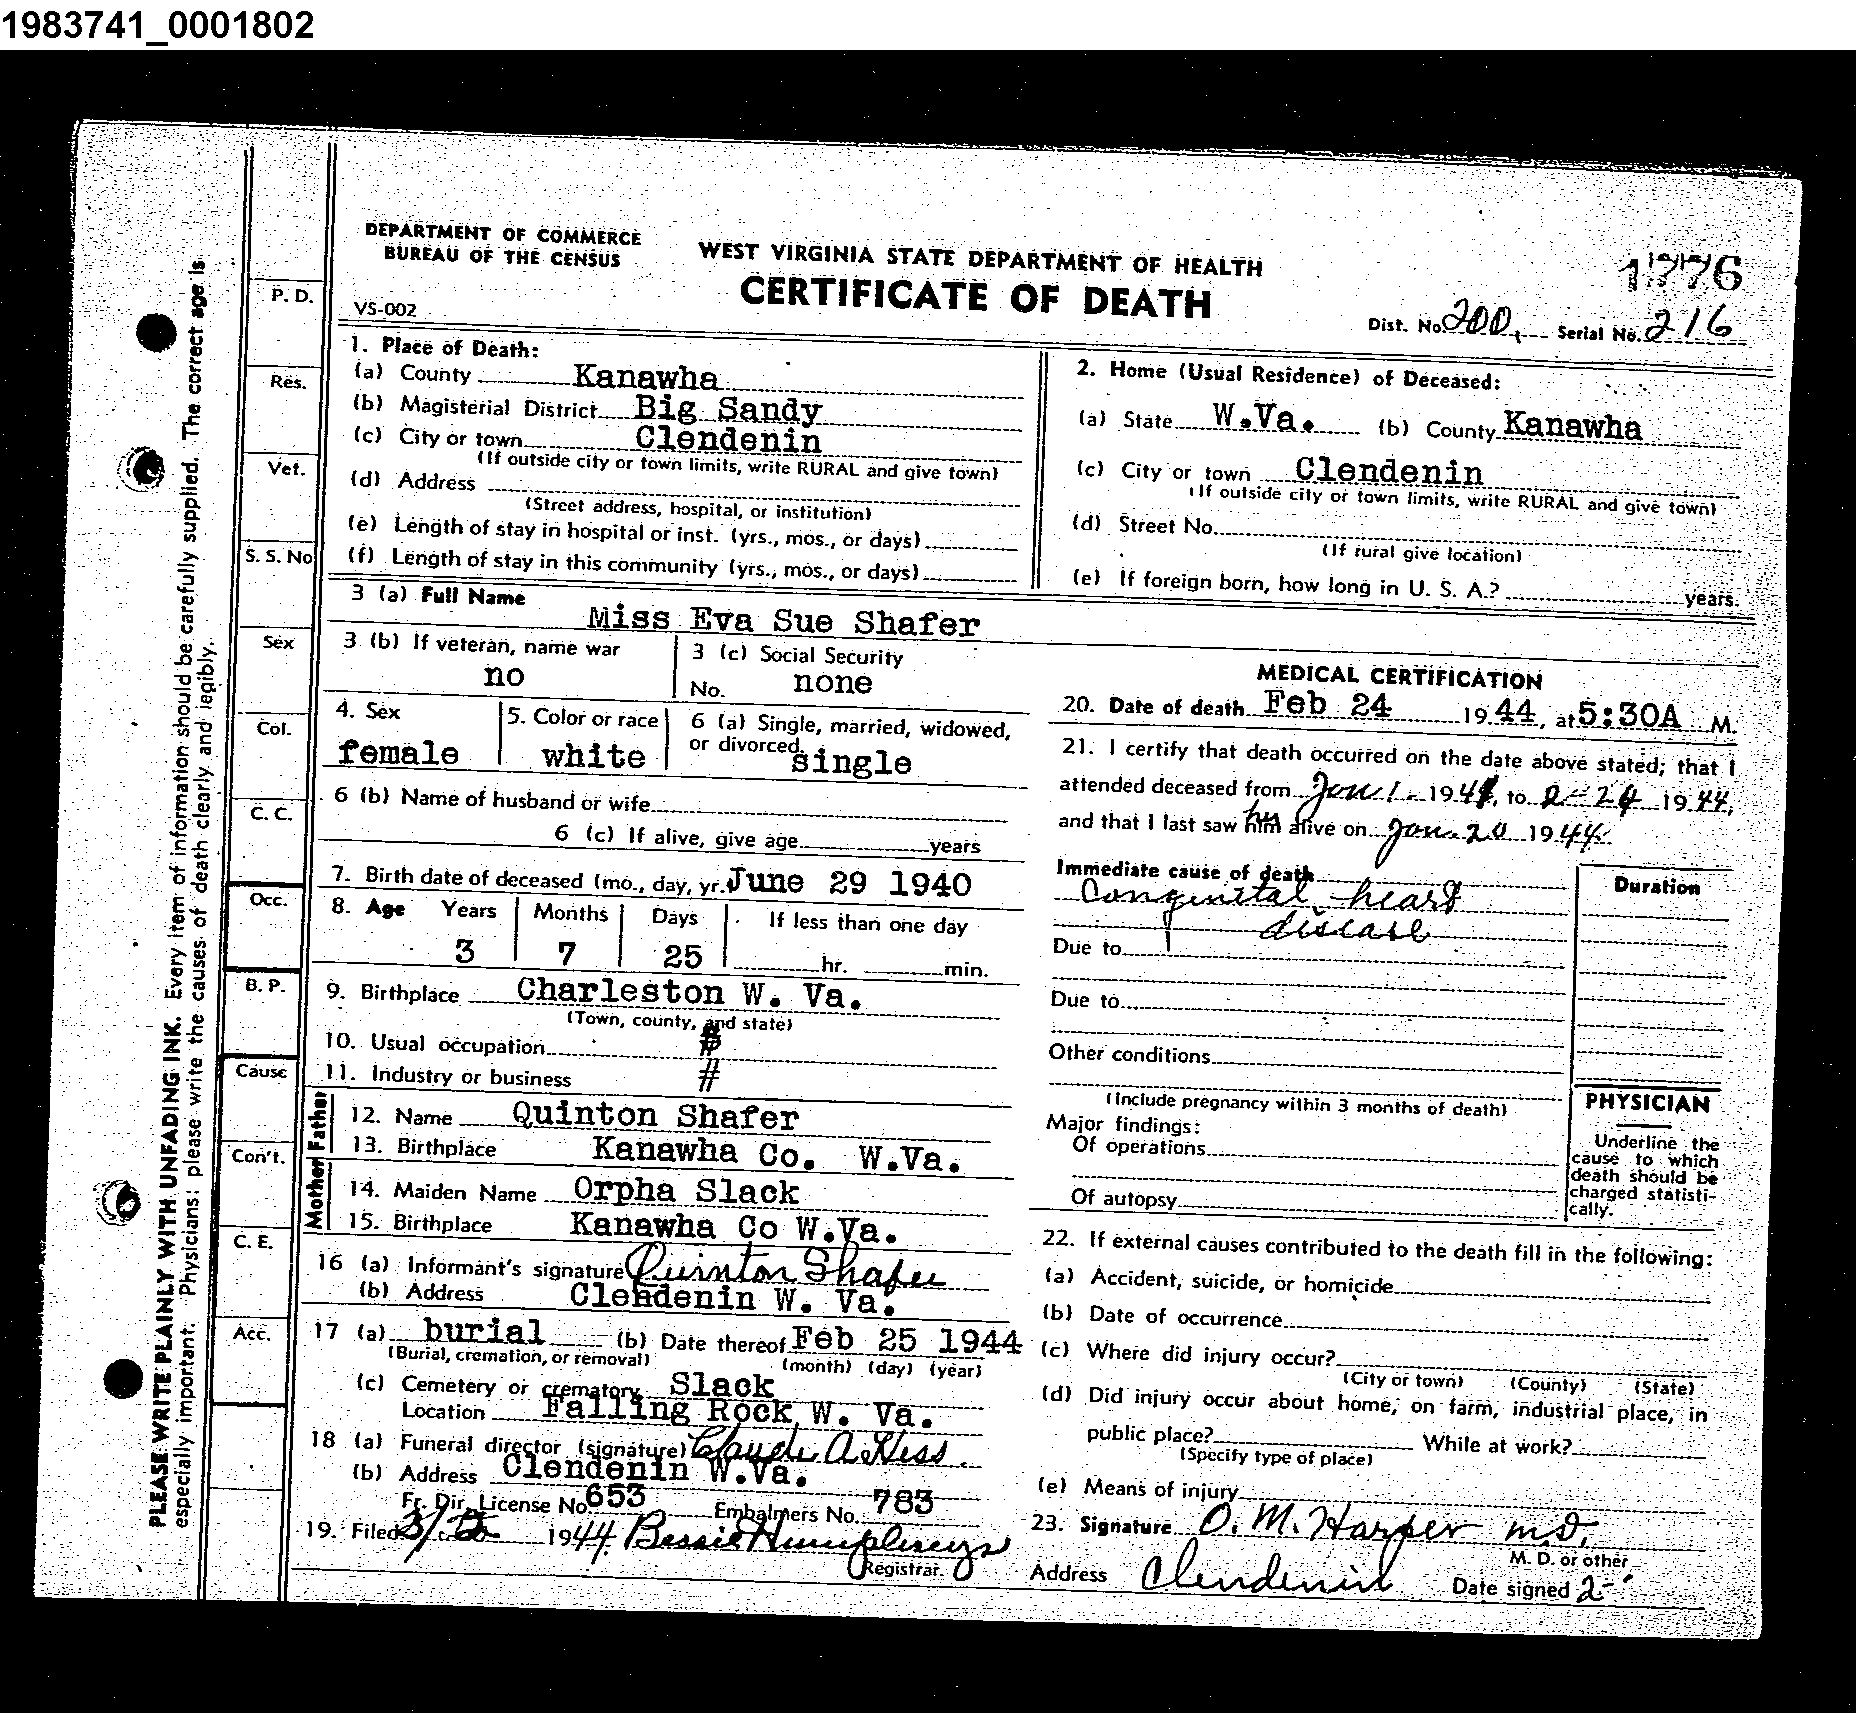 1983741_0001802
DEPARTMENT OF COMMERCE
BUREAU OF THE CENSUS
WEST VIRGINIA STATE DEPARTMENT OF HEALTH
CERTIFICATE OF DEATH
1776
VS-002
Dist. No. 200, Serial No. 216
PLEASE WRITE PLAINLY WITH UNFADING INK. Every item of information should be carefully supplied. The correct age is
especially important. Physicians: please write the causes of death clearly and legibly.
P. D.
Res.
Vet.
S. S. No
Sex
Col.
C. C.
Occ.
B. P.
Cause
Con't.
C. E.
Acc.
1. Place of Death:
(a) County Kanawha
(b) Magisterial District Big Sandy
(c) City or town Clendenin
(If outside city or town limits, write RURAL and give town)
(d) Address
(Street address, hospital, or institution)
(e) Length of stay in hospital or inst. (yrs., mos., or days)
(f) Length of stay in this community (yrs., mos., or days)
2. Home (Usual Residence) of Deceased:
(a) State W.Va. (b) County Kanawha
(c) City or town Clendenin
(If outside city or town limits, write RURAL and give town)
(d) Street No.
(If rural give location)
(e) If foreign born, how long in U. S. A.? years.
3 (a) Full Name
Miss Eva Sue Shafer
3 (b) If veteran, name war
no
3 (c) Social Security
No. none
4. Sex
female
5. Color or race
white
6 (a) Single, married, widowed,
or divorced.
single
6 (b) Name of husband or wife
6 (c) If alive, give age years
7. Birth date of deceased (mo., day, yr. June 29 1940
8. Age Years Months Days If less than one day
3 7 25 hr. min.
9. Birthplace Charleston W. Va.
(Town, county, and state)
10. Usual occupation #
11. Industry or business #
Father
12. Name Quinton Shafer
13. Birthplace Kanawha Co. W.Va.
Mother
14. Maiden Name Orpha Slack
15. Birthplace Kanawha Co W.Va.
16 (a) Informant's signature Quinton Shafer
(b) Address Clendenin W. Va.
17 (a) burial (b) Date thereof Feb 25 1944
(Burial, cremation, or removal) (month) (day) (year)
(c) Cemetery or crematory Slack
Location Falling Rock W. Va.
18 (a) Funeral director (signature) Claude A. Hess
(b) Address Clendenin W.Va.
Fr. Dir. License No 653 Embalmers No. 783
19. Filed 1944. Bessie Humphreys
Registrar.
MEDICAL CERTIFICATION
20. Date of death Feb 24 1944, at 5:30A M.
21. I certify that death occurred on the date above stated; that I
attended deceased from Jan 1- 1944, to 2-24 1944,
and that I last saw him her alive on Jan. 20 1944.
Immediate cause of death
Congenital heart
disease
Duration
Due to
Due to
Other conditions
(Include pregnancy within 3 months of death)
Major findings:
Of operations
Of autopsy
PHYSICIAN
Underline the
cause to which
death should be
charged statisti-
cally.
22. If external causes contributed to the death fill in the following:
(a) Accident, suicide, or homicide
(b) Date of occurrence
(c) Where did injury occur?
(City or town) (County) (State)
(d) Did injury occur about home, on farm, industrial place, in
public place? While at work?
(Specify type of place)
(e) Means of injury
23. Signature O. M. Harper M.D.
M. D. or other
Address Clendenin Date signed 2-